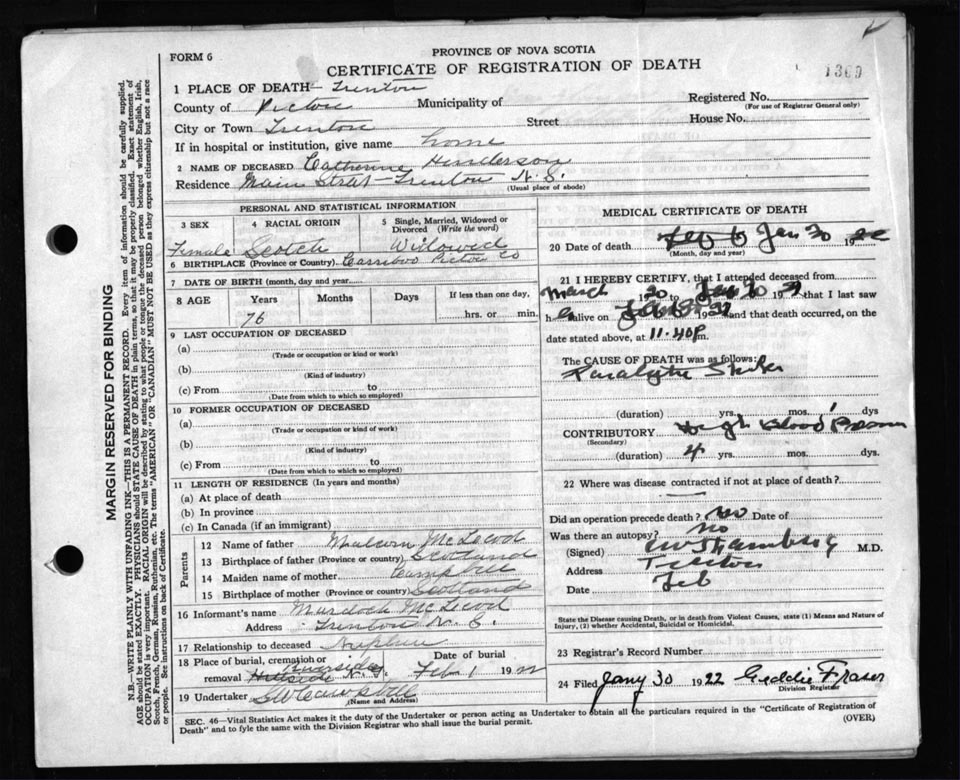 FORM 6
PROVINCE OF NOVA SCOTIA
CERTIFICATE OF REGISTRATION OF DEATH
1369
1 PLACE OF DEATH— Trenton
County of Pictou Municipality of
Registered No.
(For use of Registrar General only)
City or Town Trenton Street House No.
If in hospital or institution, give name home
2 NAME OF DECEASED Catherine Henderson
Residence Main Street - Trenton N. S.
(Usual place of abode)
PERSONAL AND STATISTICAL INFORMATION
3 SEX 4 RACIAL ORIGIN 5 Single, Married, Widowed or Divorced (Write the word)
Female Scotch Widowed
6 BIRTHPLACE (Province or Country) Carriboo Pictou Co
7 DATE OF BIRTH (month, day and year)
8 AGE Years Months Days If less than one day,
76 hrs. or min.
9 LAST OCCUPATION OF DECEASED
(a)
(Trade or occupation or kind or work)
(b)
(Kind of industry)
(c) From to
(Date from which to which so employed)
10 FORMER OCCUPATION OF DECEASED
(a)
(Trade or occupation or kind or work)
(b)
(Kind of industry)
(c) From to
(Date from which to which so employed)
11 LENGTH OF RESIDENCE (In years and months)
(a) At place of death
(b) In province
(c) In Canada (if an immigrant)
Parents
12 Name of father Malcom McLeod
13 Birthplace of father (Province or country) Scotland
14 Maiden name of mother Campbell
15 Birthplace of mother (Province or country) Scotland
16 Informant's name Murdoch McLeod
Address Trenton N. S.
17 Relationship to deceased Nephew
18 Place of burial, cremation or removal Riverside Hillside N. S. Date of burial Feb 1 1922
19 Undertaker
(Name and Address)
MEDICAL CERTIFICATE OF DEATH
20 Date of death Jan 30 19
(Month, day and year)
21 I HEREBY CERTIFY, that I attended deceased from
March 20 to Jan 30 19 that I last saw
h alive on 19 and that death occurred, on the
date stated above, at 11.40 P m.
The CAUSE OF DEATH was as follows:
Paralytic Stroke
(duration) yrs. mos. 1 dys
CONTRIBUTORY High Blood Pressure
(Secondary)
(duration) 4 yrs. mos. dys.
22 Where was disease contracted if not at place of death?
Did an operation precede death? No Date of
Was there an autopsy? no
(Signed) M.D.
Address Trenton
Date Feb
State the Disease causing Death, or in death from Violent Causes, state (1) Means and Nature of Injury, (2) whether Accidental, Suicidal or Homicidal.
23 Registrar's Record Number
24 Filed Jany 30 1922 Geddie Fraser
Division Registrar
SEC. 46—Vital Statistics Act makes it the duty of the Undertaker or person acting as Undertaker to obtain all the particulars required in the "Certificate of Registration of
Death" and to fyle the same with the Division Registrar who shall issue the burial permit.
(OVER)
MARGIN RESERVED FOR BINDING
N.B.—WRITE PLAINLY WITH UNFADING INK—THIS IS A PERMANENT RECORD. Every item of information should be carefully supplied.
AGE should be stated EXACTLY. PHYSICIANS should STATE CAUSE OF DEATH in plain terms, so that it may be properly classified. Exact statement of
OCCUPATION is very important. RACIAL ORIGIN will be described by stating to what people or tongue the deceased person belonged whether English, Irish,
Scotch, French, German, Russian, Ruthenian, etc. The terms "AMERICAN" OR "CANADIAN" MUST NOT BE USED as they express citizenship but not a race
or people. See instructions on back of Certificate.